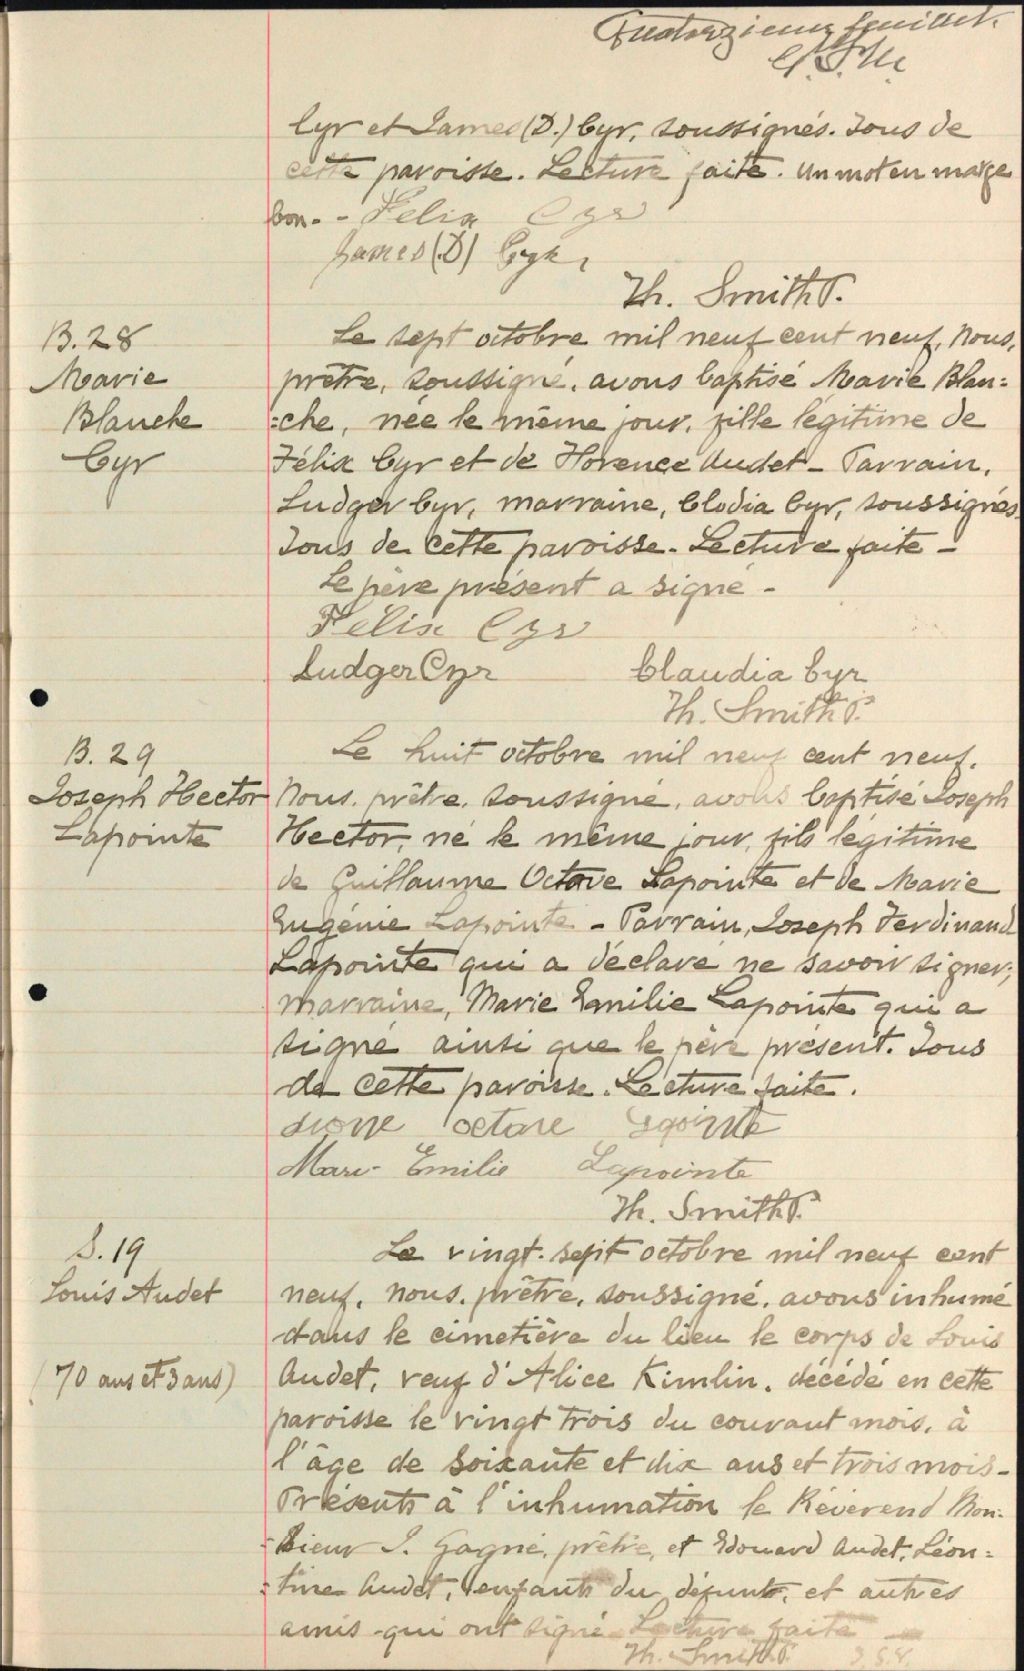 Quatorzieme feuillet.
Cyr et James (D.) Cyr, soussignés. Tous de
cette paroisse. Lecture faite. Un mot en marge
bon. - Felix Cyr
James (D) Cyr,
Th. Smith P.
B. 28
Marie
Blanche
Cyr
Le sept octobre mil neuf cent neuf, Nous,
prêtre, soussigné, avons baptisé Marie Blan=
=che, née le même jour, fille légitime de
Félix Cyr et de Florence Audet - Parrain,
Ludger Cyr, marraine, Clodia Cyr, soussignés
Tous de cette paroisse. Lecture faite -
Le père présent a signé -
Felix Cyr
Ludger Cyr Claudia Cyr
Th. Smith P.
B. 29
Joseph Hector
Lapointe
Le huit octobre mil neuf cent neuf.
Nous, prêtre, soussigné, avons baptisé Joseph
Hector, né le même jour, fils légitime
de Guillaume Octave Lapointe et de Marie
Eugénie Lapointe - Parrain, Joseph Ferdinand
Lapointe qui a déclaré ne savoir signer;
marraine, Marie Emilie Lapointe qui a
signé ainsi que le père présent. Tous
de cette paroisse. Lecture faite.
octave Lapointe
Marie Emilie Lapointe
Th. Smith P.
S. 19
Louis Audet
(70 ans et 3 ans)
Le vingt-sept octobre mil neuf cent
neuf, nous, prêtre, soussigné, avons inhumé
dans le cimetière du lieu le corps de Louis
Audet, veuf d'Alice Kimlin, décédé en cette
paroisse le vingt trois du courant mois, à
l'âge de soixante et dix ans et trois mois -
Présents à l'inhumation le Révérend Mon=
=sieur J. Gagné, prêtre, et Edouard Audet, Léon=
=tine Audet, enfants du défunt, et autres
amis qui ont signé Lecture faite
Th. Smith P.